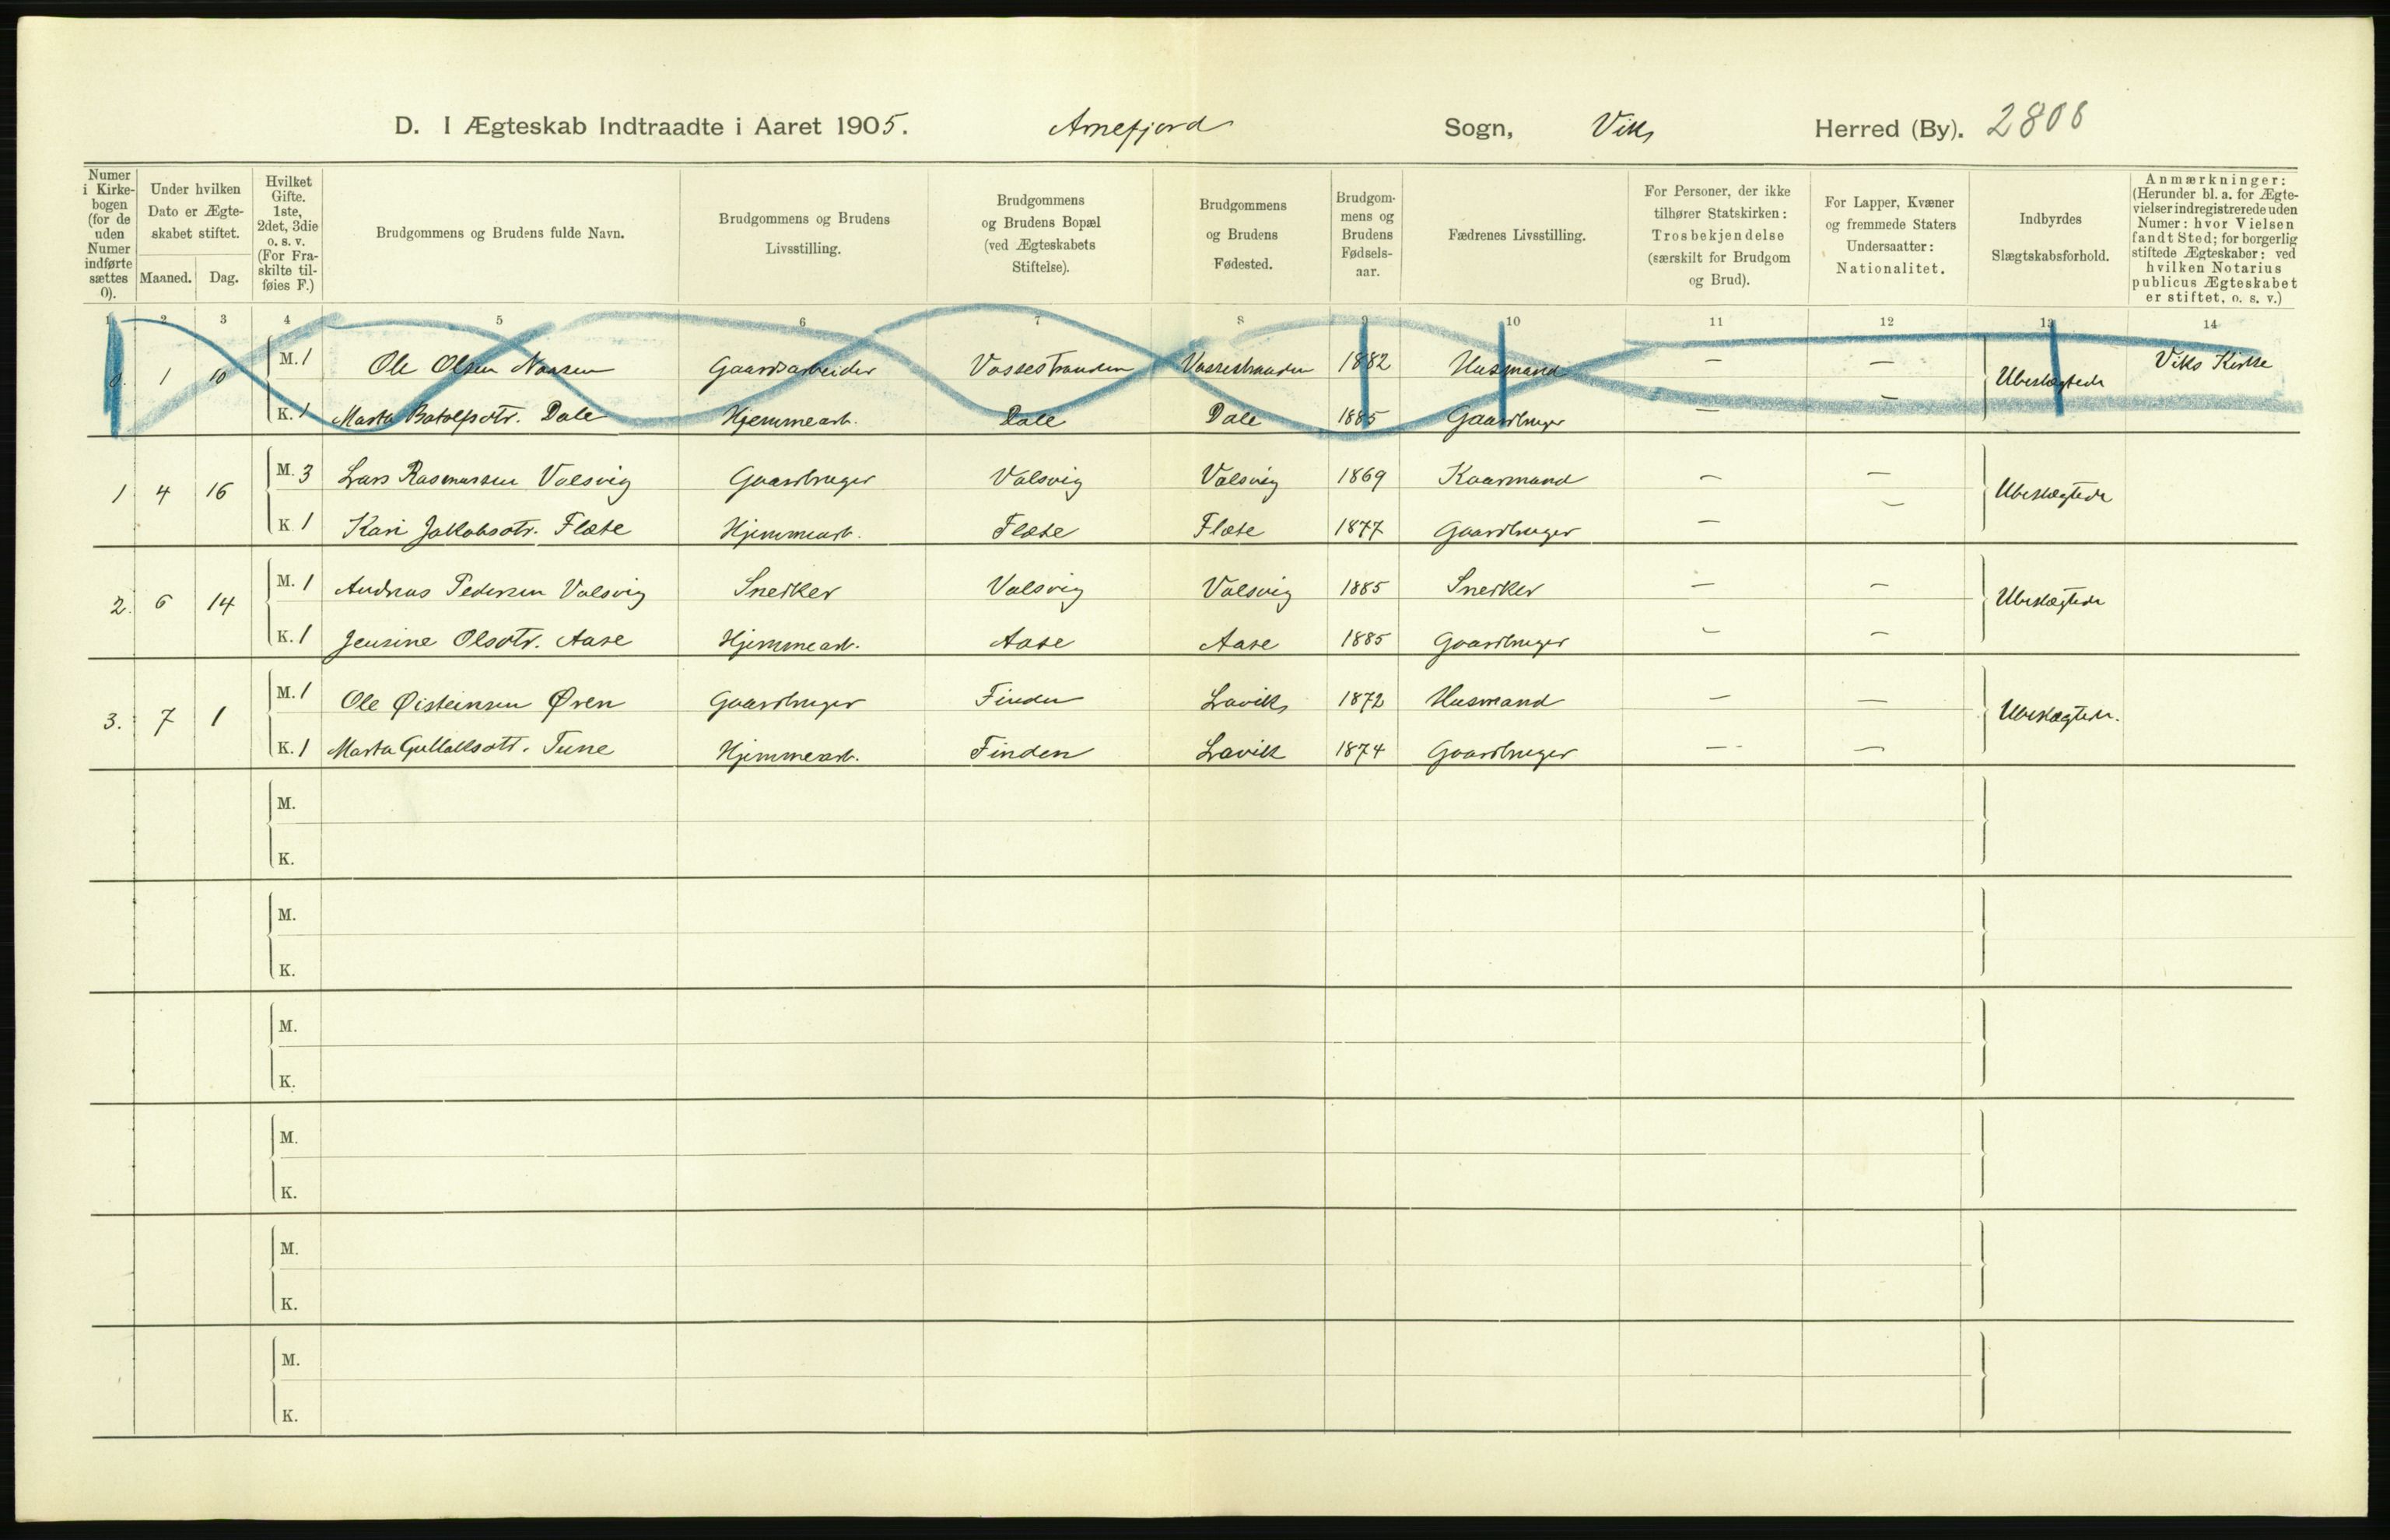 D. I Ægteskab Indtraadte i Aaret 1905. Arnefjord Sogn, Viks Herred (By). 2808
Numer i Kirkebogen (for de uden Numer indførte sættes 0).
Under hvilken Dato er Ægteskabet stiftet.
Maaned. Dag.
Hvilket Gifte. 1ste, 2det, 3die o. s. v. (For Fraskilte tilføies F.)
Brudgommens og Brudens fulde Navn.
Brudgommens og Brudens Livsstilling.
Brudgommens og Brudens Bopæl (ved Ægteskabets Stiftelse).
Brudgommens og Brudens Fødested.
Brudgommens og Brudens Fødselsaar.
Fædrenes Livsstilling.
For Personer, der ikke tilhører Statskirken: Trosbekjendelse (særskilt for Brudgom og Brud).
For Lapper, Kvæner og fremmede Staters Undersaatter: Nationalitet.
Indbyrdes Slægtskabsforhold.
Anmærkninger: (Herunder bl. a. for Ægtevielser indregistrerede uden Numer: hvor Vielsen fandt Sted; for borgerlig stiftede Ægteskaber: ved hvilken Notarius publicus Ægteskabet er stiftet, o. s. v.)
1 2 3 4 5 6 7 8 9 10 11 12 13 14
0. 1 10 M. 1 Ole Olsen Gaardsarbeider Vossestranden Vossestranden 1882 Husmand — — Ubeslægtede Viks Kirke
K. 1 Marta Botolfsdtr. Dale Hjemmearb. Dale Dale 1885 Gaardbruger — —
1 4 16 M. 3 Lars Rasmussen Valsvig Gaardbruger Valsvig Valsvig 1869 Kaarmand — — Ubeslægtede
K. 1 Kari Jakobsdtr. Flæte Hjemmearb. Flæte Flæte 1877 Gaardbruger — —
2. 6 14 M. 1 Andreas Pedersen Valsvig Snedker Valsvig Valsvig 1885 Snedker — — Ubeslægtede
K. 1 Jensine Olsdtr. Aase Hjemmearb. Aase Aase 1885 Gaardbruger — —
3. 7 1 M. 1 Ole Øisteinsen Øren Gaardbruger Finden Lavik 1872 Husmand — — Ubeslægtede.
K. 1 Marta Gullaksdtr. Tune Hjemmearb. Finden Lavik 1874 Gaardbruger — —
M.
K.
M.
K.
M.
K.
M.
K.
M.
K.
M.
K.